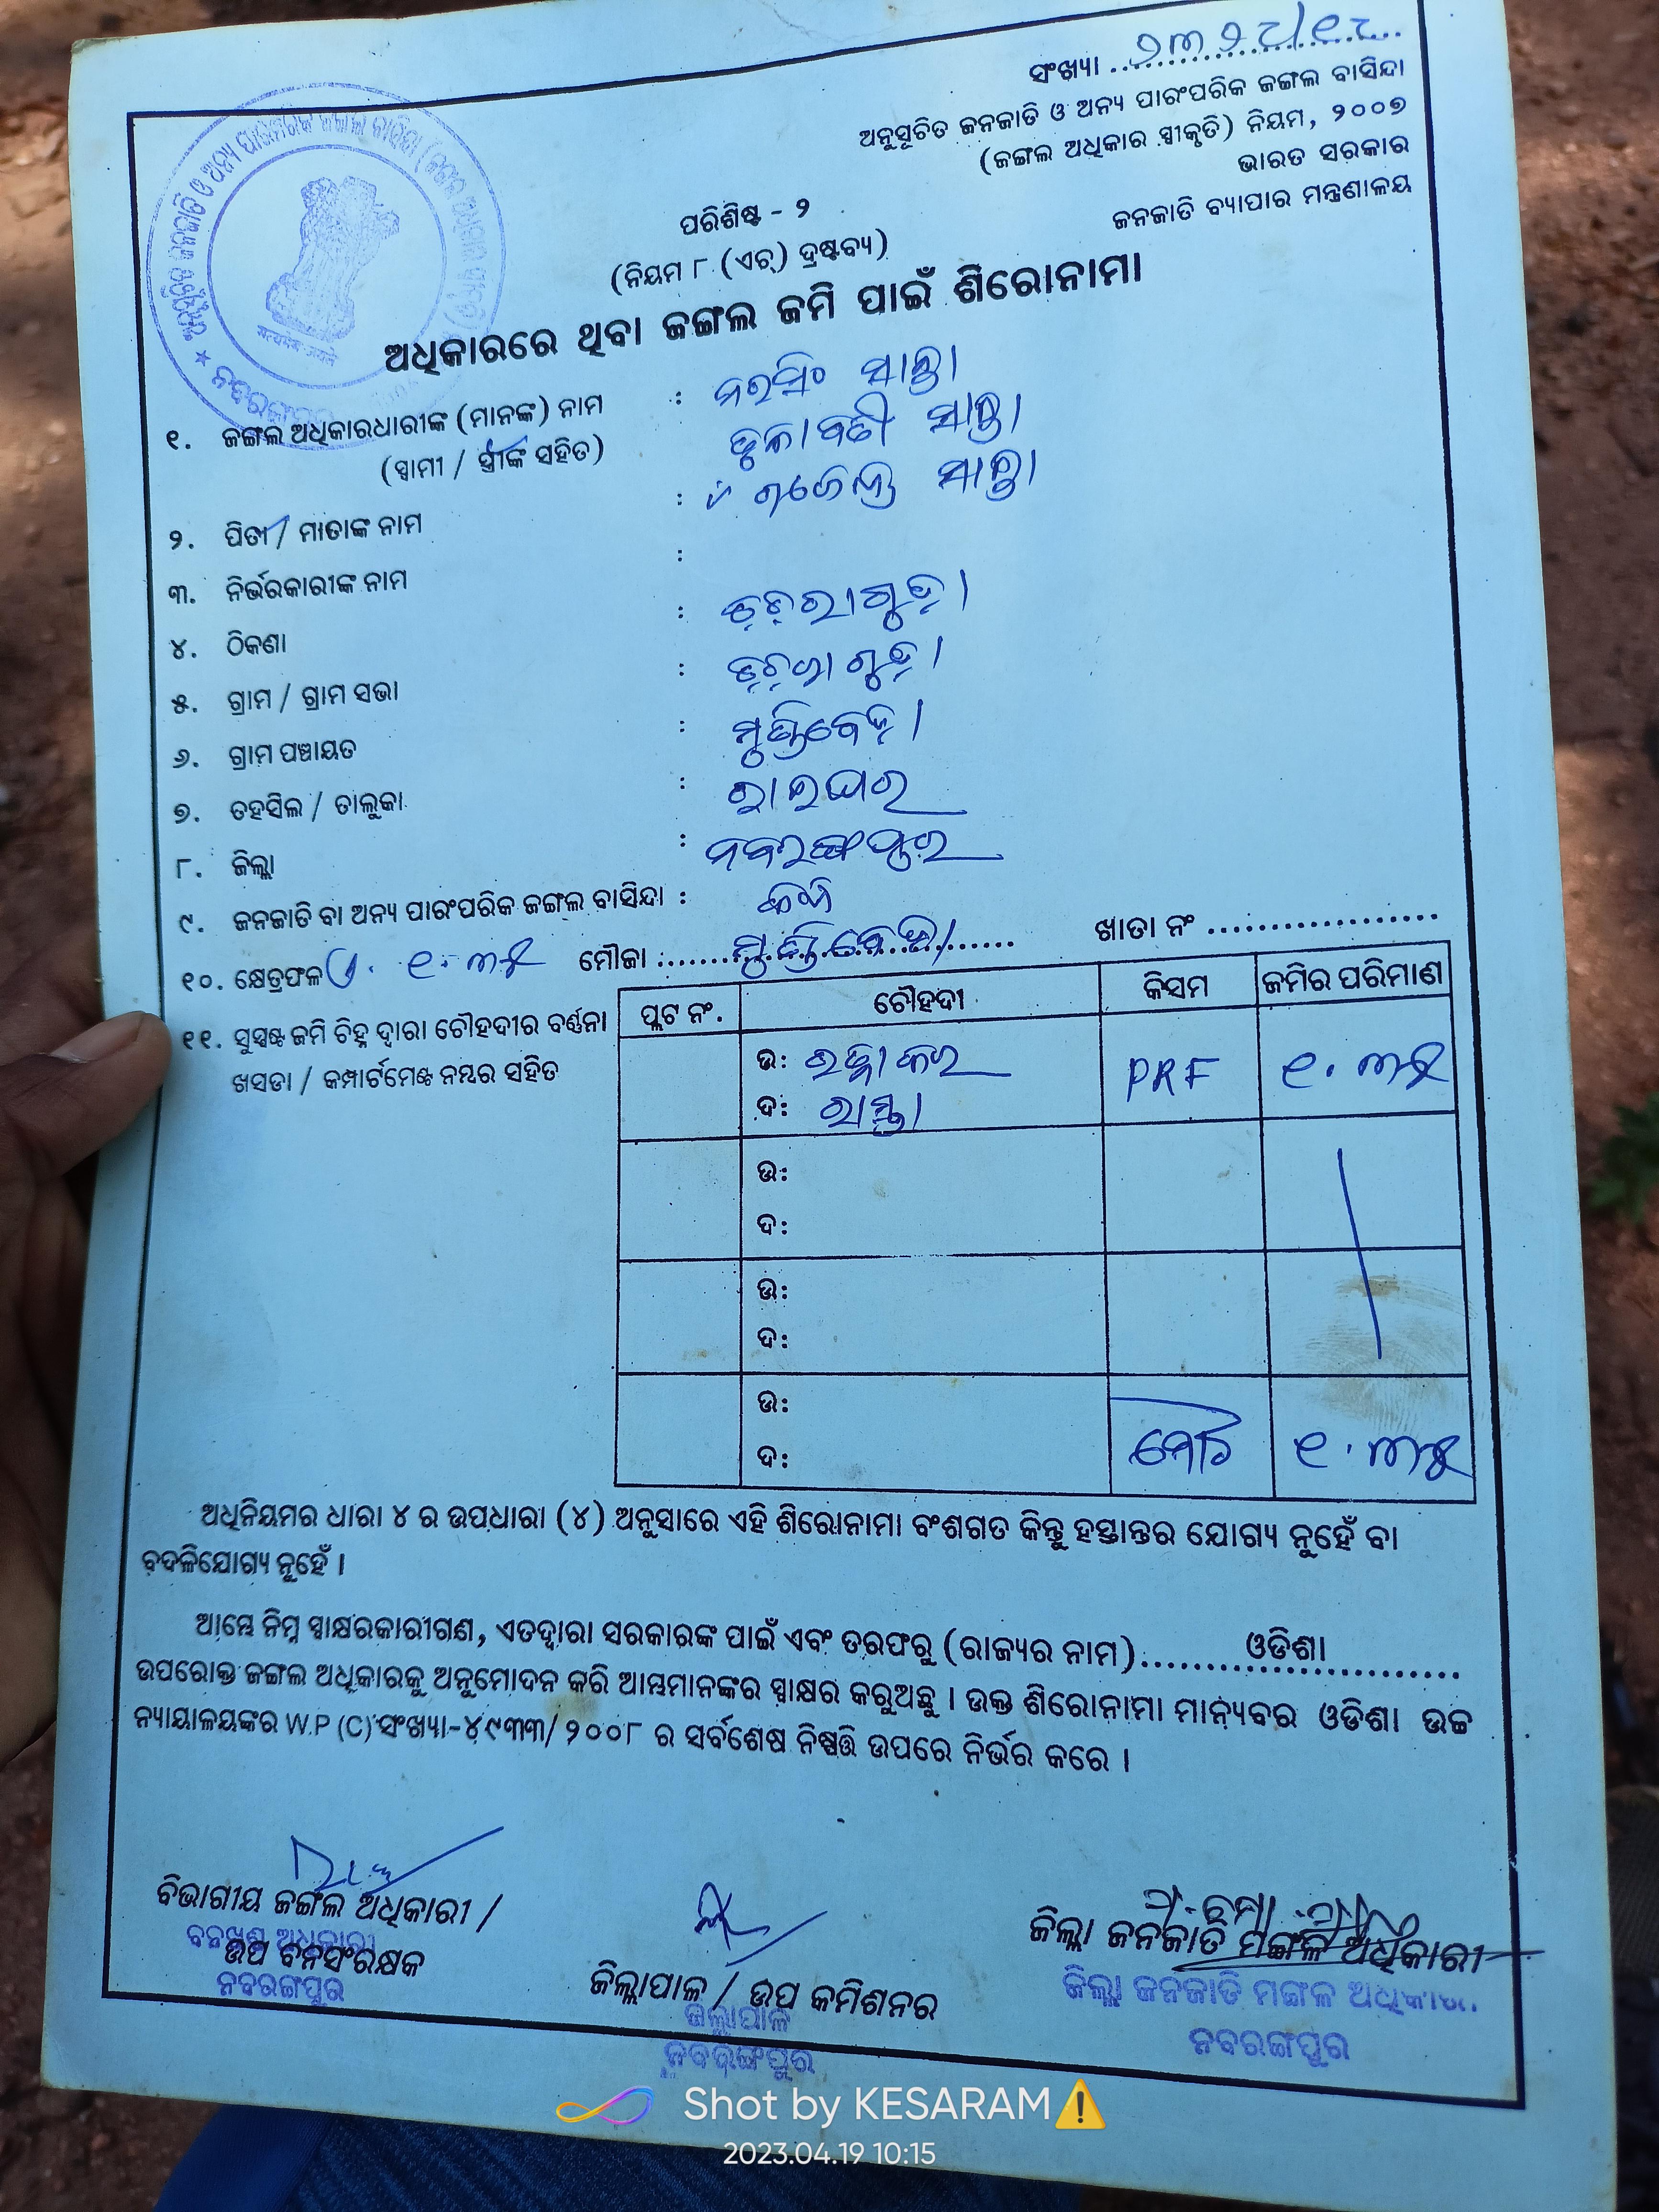 ସଂଖ୍ୟା ୨୩୨୯/୧୮
ଅନୁସୂଚିତ ଜନଜାତି ଓ ଅନ୍ୟ ପାରଂପରିକ ଜଙ୍ଗଲ ବାସିନ୍ଦା
(ଜଙ୍ଗଲ ଅଧିକାର ସ୍ୱୀକୃତି) ନିୟମ, ୨୦୦୭
ଭାରତ ସରକାର
ଜନଜାତି ବ୍ୟାପାର ମନ୍ତ୍ରଣାଳୟ
ପରିଶିଷ୍ଟ - ୨
(ନିୟମ ୮ (ଏଚ୍) ଦ୍ରଷ୍ଟବ୍ୟ)
ଅଧିକାରରେ ଥିବା ଜଙ୍ଗଲ ଜମି ପାଇଁ ଶିରୋନାମା
୧. ଜଙ୍ଗଲ ଅଧିକାରଧାରୀଙ୍କ (ମାନଙ୍କ) ନାମ : ନରସିଂ ସାନ୍ତା
(ସ୍ୱାମୀ / ସ୍ତ୍ରୀଙ୍କ ସହିତ) ସାନ୍ତା
୨. ପିତା / ମାତାଙ୍କ ନାମ : ସାନ୍ତା
୩. ନିର୍ଭରକାରୀଙ୍କ ନାମ :
୪. ଠିକଣା :
୫. ଗ୍ରାମ / ଗ୍ରାମ ସଭା :
୬. ଗ୍ରାମ ପଞ୍ଚାୟତ : ମୁଣ୍ଡିବେଡ଼ା
୭. ତହସିଲ / ତାଲୁକା : ରାଇଘର
୮. ଜିଲ୍ଲା : ନବରଙ୍ଗପୁର
୯. ଜନଜାତି ବା ଅନ୍ୟ ପାରଂପରିକ ଜଙ୍ଗଲ ବାସିନ୍ଦା :
୧୦. କ୍ଷେତ୍ରଫଳ ଏ. ୧.୩୫ ମୌଜା ମୁଣ୍ଡିବେଡ଼ା ଖାତା ନଂ ....................
୧୧. ସୁସ୍ପଷ୍ଟ ଜମି ଚିହ୍ନ ଦ୍ୱାରା ଚୌହଦୀର ବର୍ଣ୍ଣନା
ଖସଡା / କମ୍ପାର୍ଟମେଣ୍ଟ ନମ୍ବର ସହିତ
ପ୍ଲଟ ନଂ. ଚୌହଦୀ କିସମ ଜମିର ପରିମାଣ
ଉ: ରତ୍ନାକର PRF ୧.୩୫
ଦ: ରାସ୍ତା
ଉ:
ଦ:
ଉ:
ଦ:
ଉ:
ଦ: ମୋଟ ୧.୩୫
ଅଧିନିୟମର ଧାରା ୪ ର ଉପଧାରା (୪) ଅନୁସାରେ ଏହି ଶିରୋନାମା ବଂଶଗତ କିନ୍ତୁ ହସ୍ତାନ୍ତର ଯୋଗ୍ୟ ନୁହେଁ ବା
ବଦଳିଯୋଗ୍ୟ ନୁହେଁ ।
ଆମ୍ଭେ ନିମ୍ନ ସ୍ୱାକ୍ଷରକାରୀଗଣ, ଏତଦ୍ୱାରା ସରକାରଙ୍କ ପାଇଁ ଏବଂ ତରଫରୁ (ରାଜ୍ୟର ନାମ) ଓଡିଶା
ଉପରୋକ୍ତ ଜଙ୍ଗଲ ଅଧିକାରକୁ ଅନୁମୋଦନ କରି ଆମ୍ଭମାନଙ୍କର ସ୍ୱାକ୍ଷର କରୁଅଛୁ । ଉକ୍ତ ଶିରୋନାମା ମାନ୍ୟବର ଓଡିଶା ଉଚ୍ଚ
ନ୍ୟାୟାଳୟଙ୍କର W.P (C) ସଂଖ୍ୟା-୪୯୩୩/୨୦୦୮ ର ସର୍ବଶେଷ ନିଷ୍ପତ୍ତି ଉପରେ ନିର୍ଭର କରେ ।
ବିଭାଗୀୟ ଜଙ୍ଗଲ ଅଧିକାରୀ /
ବନଖଣ୍ଡ ଅଧିକାରୀ
ଉପ ବନସଂରକ୍ଷକ
ନବରଙ୍ଗପୁର
ଜିଲ୍ଲାପାଳ / ଉପ କମିଶନର
ଜିଲ୍ଲାପାଳ
ନବରଙ୍ଗପୁର
ଜିଲ୍ଲା ଜନଜାତି ମଙ୍ଗଳ ଅଧିକାରୀ
ଜିଲ୍ଲା ଜନଜାତି ମଙ୍ଗଳ ଅଧିକାରୀ
ନବରଙ୍ଗପୁର
Shot by KESARAM⚠️
2023.04.19 10:15